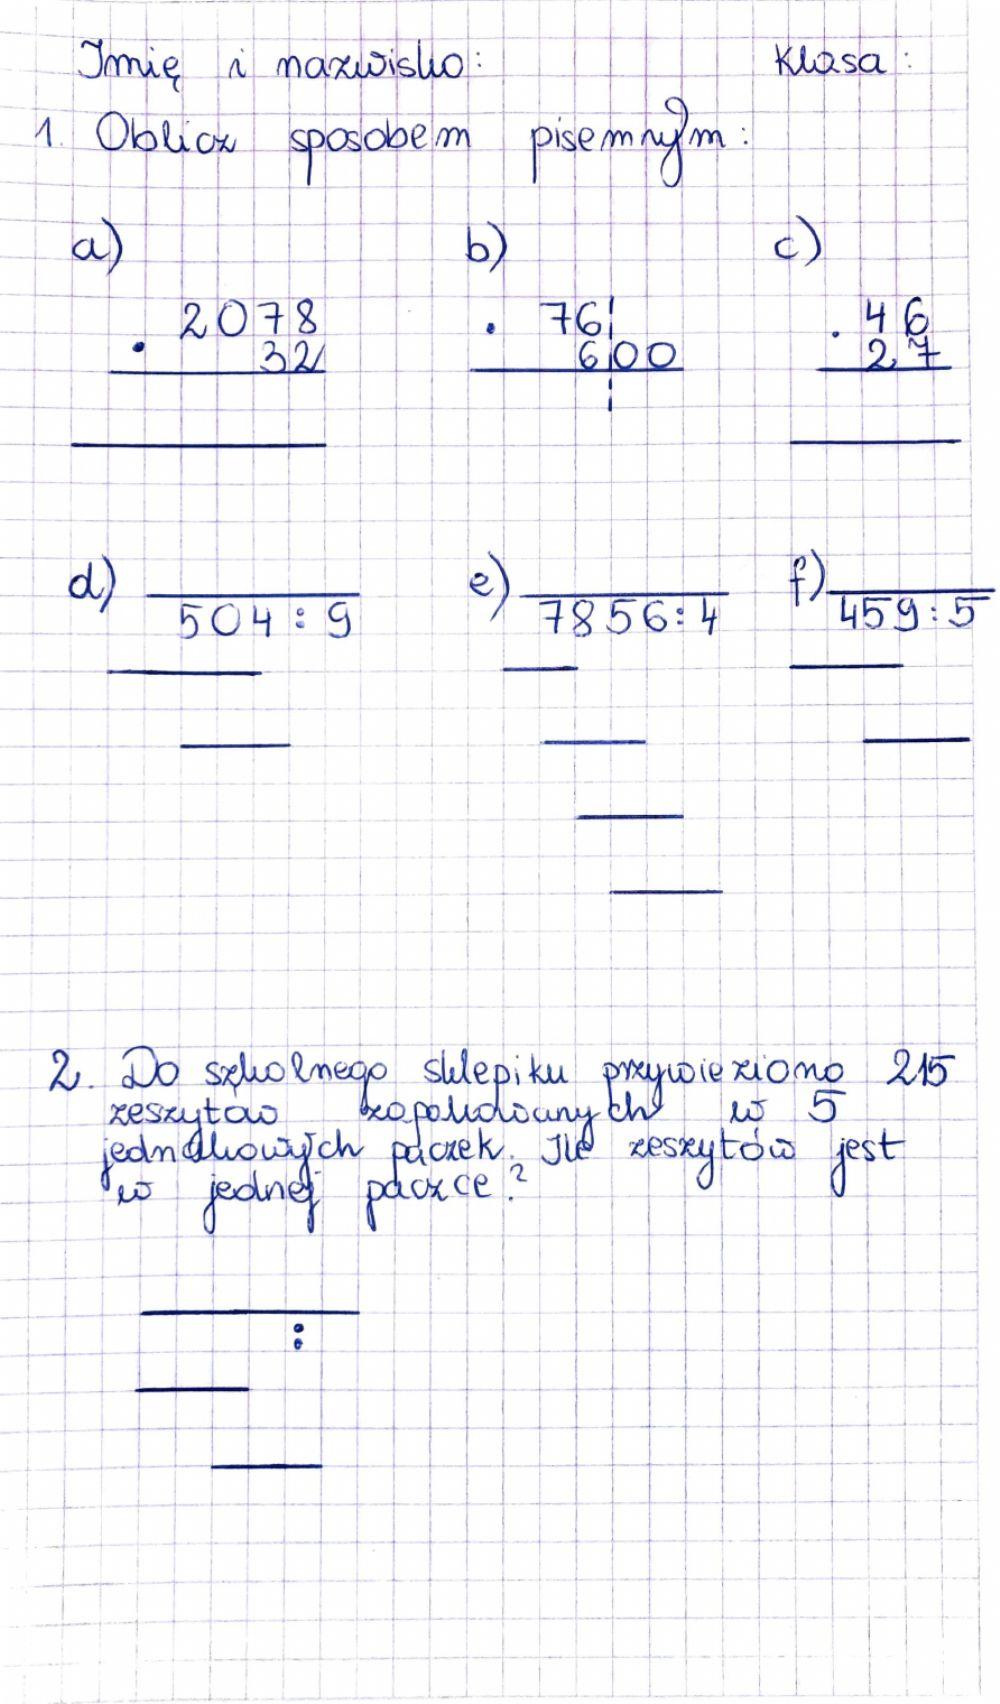 Imię i nazwisko: Klasa:
1. Oblicz sposobem pisemnym:
a) b) c)
2078 · 76 · 46
· 32 600 27
d) e) f)
504 : 9 7856 : 4 459 : 5
2. Do szkolnego sklepiku przywieziono 215
zeszytów zapakowanych w 5
jednakowych paczek. Ile zeszytów jest
w jednej paczce?
: